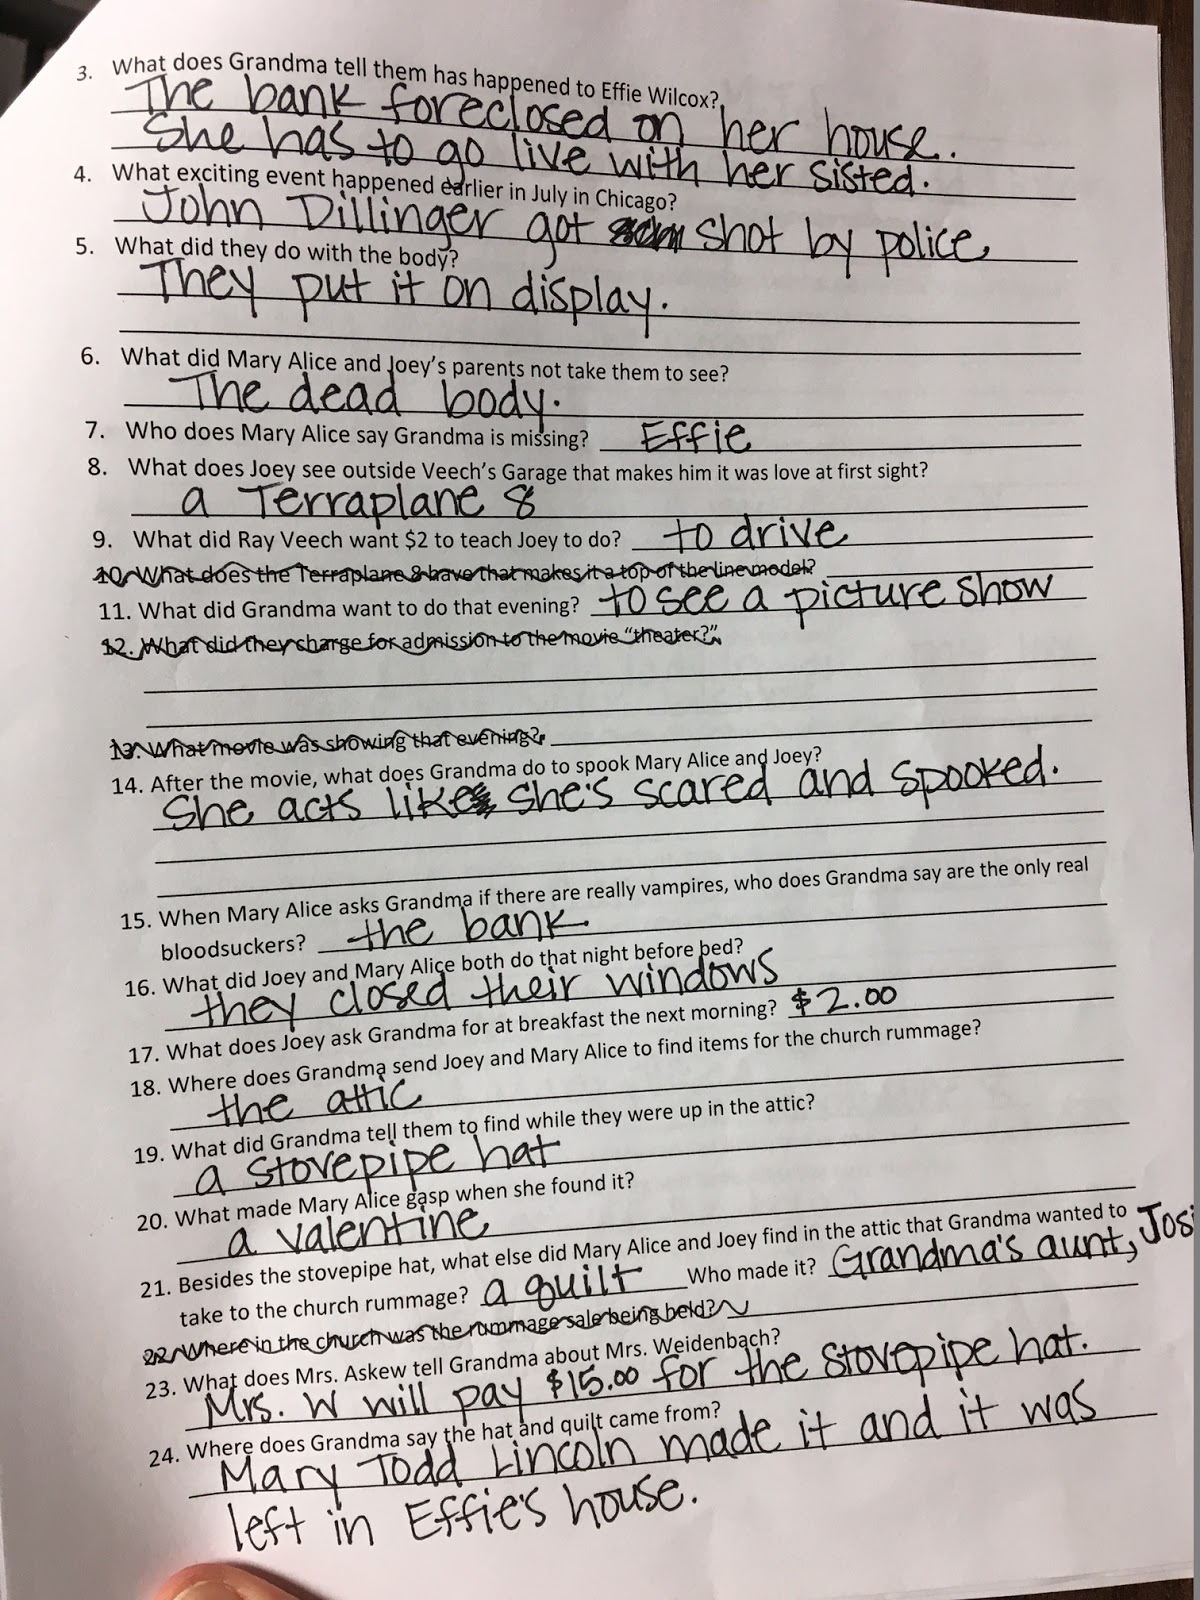 3. What does Grandma tell them has happened to Effie Wilcox?
The bank foreclosed on her house.
She has to go live with her sisted.
4. What exciting event happened earlier in July in Chicago?
John Dillinger got shot by police
5. What did they do with the body?
They put it on display.
6. What did Mary Alice and Joey's parents not take them to see?
The dead body.
7. Who does Mary Alice say Grandma is missing? Effie
8. What does Joey see outside Veech's Garage that makes him it was love at first sight?
a Terraplane 8
9. What did Ray Veech want $2 to teach Joey to do? to drive
10. What does the Terraplane 8 have that makes it a top of the line model?
11. What did Grandma want to do that evening? to see a picture show
12. What did they charge for admission to the movie "theater?"
13. What movie was showing that evening?
14. After the movie, what does Grandma do to spook Mary Alice and Joey?
She acts like she's scared and spooked.
15. When Mary Alice asks Grandma if there are really vampires, who does Grandma say are the only real
bloodsuckers? the bank.
16. What did Joey and Mary Alice both do that night before bed?
they closed their windows
17. What does Joey ask Grandma for at breakfast the next morning? $2.00
18. Where does Grandma send Joey and Mary Alice to find items for the church rummage?
the attic
19. What did Grandma tell them to find while they were up in the attic?
a stovepipe hat
20. What made Mary Alice gasp when she found it?
a valentine
21. Besides the stovepipe hat, what else did Mary Alice and Joey find in the attic that Grandma wanted to
take to the church rummage? a quilt Who made it? Grandma's aunt, Josi
22. Where in the church was the rummage sale being held?
23. What does Mrs. Askew tell Grandma about Mrs. Weidenbach?
Mrs. W will pay $15.00 for the stovepipe hat.
24. Where does Grandma say the hat and quilt came from?
Mary Todd Lincoln made it and it was
left in Effie's house.